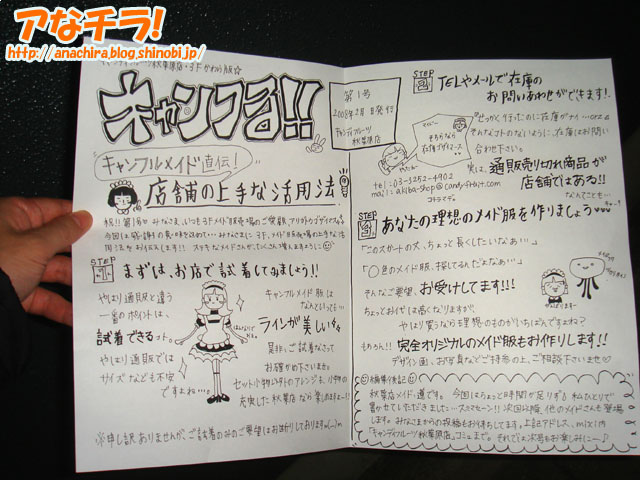 アなチラ!
http://anachira.blog.shinobi.jp/
キャンディフルーツ秋葉原店・3Fかわら版☆
キャンフる!!
第1号
2008年2月 日発行
キャンディフルーツ
秋葉原店
キャンフルメイド直伝!
店舗の上手な活用法
STEP
1
まずは、お店で試着してみましょう!!
やはり通販と違う
一番のポイントは、
試着できるコト。
やはり通販では
サイズなども不安
ですよね…。
キャンフルメイド服は
なんといっても…
ラインが美しい
是非、ご試着なさって
お確かめ下さいませ。
セット小物以外とのアレンジも、小物の
充実した秋葉店なら楽しめますよー!
※申し訳ありませんが、ご試着のみのご要望はお断りしております
STEP
2
TELやメールで在庫の
お問いあわせができます!
せっかく行ったのに在庫がナイ…orz
そんなコトのないように、在庫はお問い
合わせ下さい。
実は、通販売り切れ商品が
店舗ではある!!
なんてことも…
tel:03-5252-4902
mail:akiba-shop@candyfruit.com
コチラマデ。
STEP
3
あなたの理想のメイド服を作りましょう
「このスカートの丈、ちょっと長くしたいなぁ…」
「○色のメイド服、探してるんだよなぁ…」
そんなご要望、お受けしてます!!!
がんばります
ちょっとお代は高くなりますが、
やはり買うなら理想のものがいちばんですよね?
もちろん!!完全オリジナルのメイド服もお作りします!!
デザイン画、お写真などご持参の上、ご相談下さいませ
編集後記
秋葉店メイド・選です。今回はちょっと時間が足りず♪私ひとりで
書かせていただきました…スミマセーン!!次回以降、他のメイドさんも登場
します。みなさまからの投稿もお待ちしてます。上記アドレス、mixi内
「キャンディフルーツ秋葉原店」コミュまで。それでは次号をお楽しみに〜♪